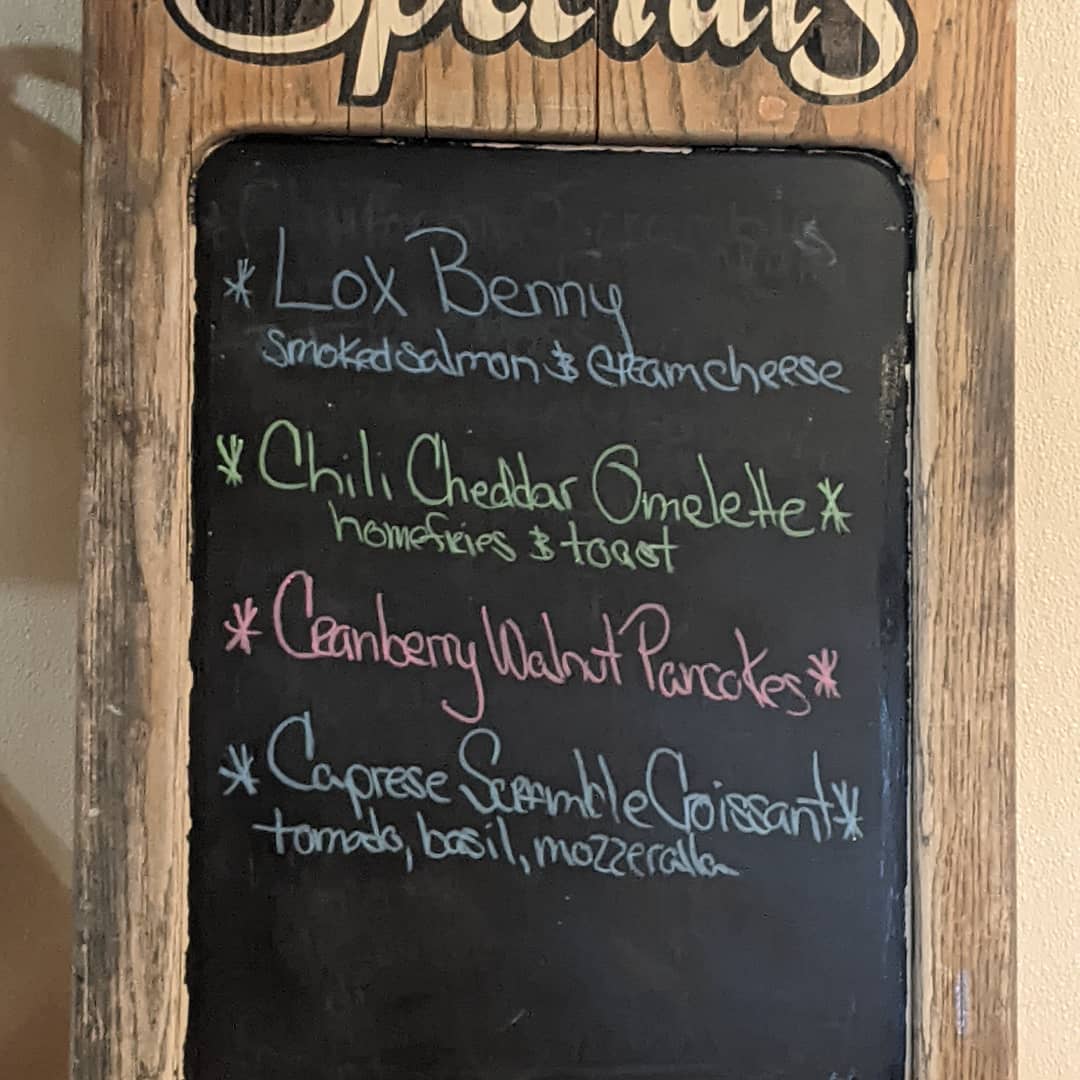 Specials
* Lox Benny
smoked salmon & cream cheese
* Chili Cheddar Omelette *
homefries & toast
* Cranberry Walnut Pancakes *
* Caprese Scramble Croissant *
tomato, basil, mozzeralla